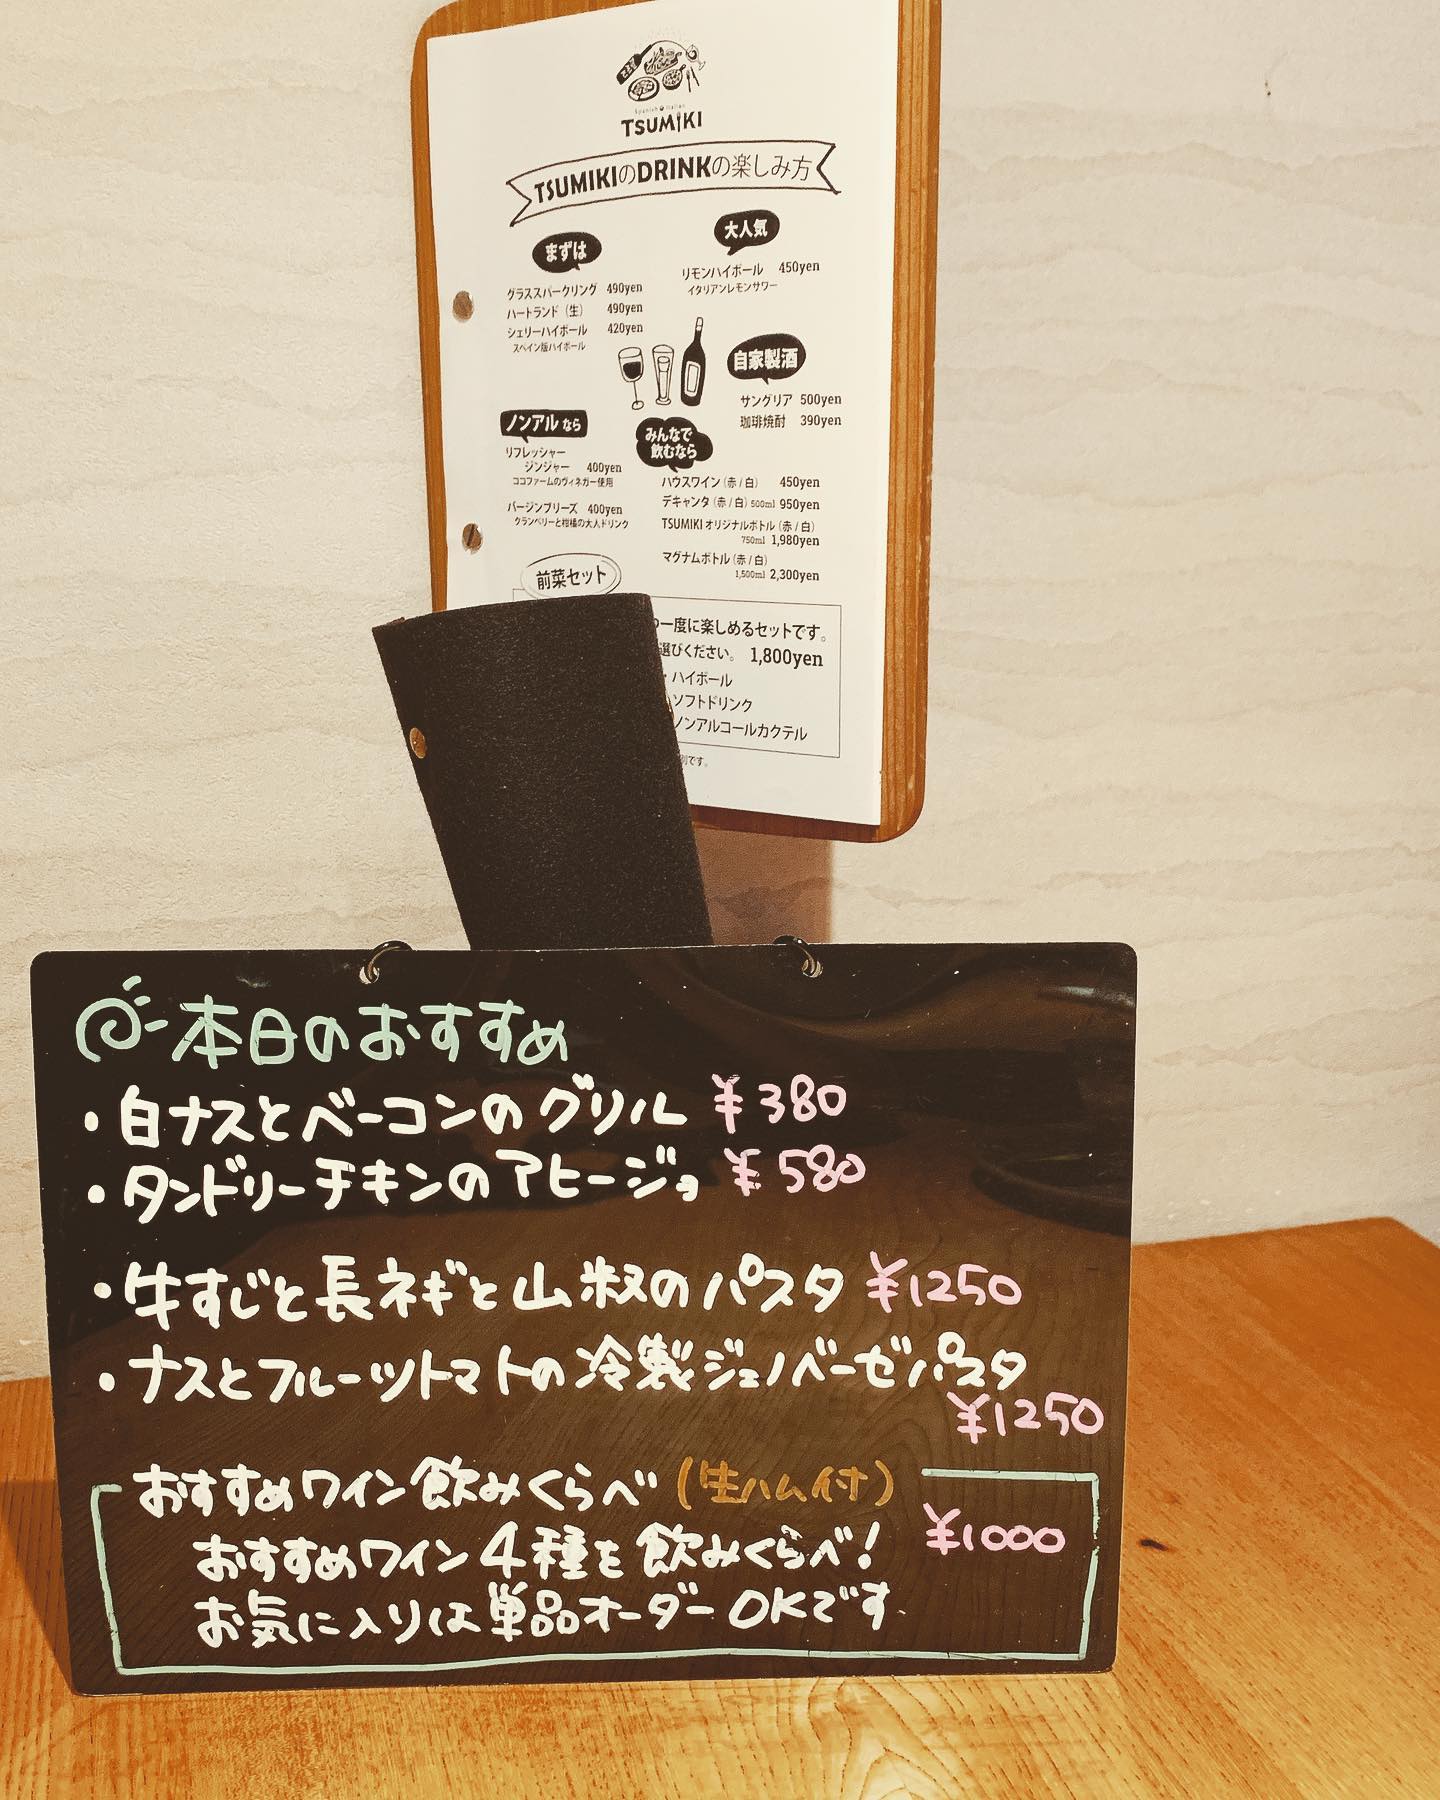 Spanish Italian
TSUMIKI
TSUMIKIのDRINKの楽しみ方
まずは
グラススパークリング 490yen
ハートランド（生） 490yen
シェリーハイボール 420yen
スペイン版ハイボール
大人気
リモンハイボール 450yen
イタリアンレモンサワー
自家製酒
サングリア 500yen
珈琲焼酎 390yen
ノンアルなら
リフレッシャー
ジンジャー 400yen
ココファームのヴィネガー使用
バージンブリーズ 400yen
クランベリーと柑橘の大人ドリンク
みんなで
飲むなら
ハウスワイン（赤 / 白） 450yen
デキャンタ（赤 / 白）500ml 950yen
TSUMIKI オリジナルボトル（赤 / 白）
750ml 1,980yen
マグナムボトル（赤 / 白）
1,500ml 2,300yen
前菜セット
一度に楽しめるセットです。
選びください。 1,800yen
・ハイボール
ソフトドリンク
ノンアルコールカクテル
別です。
本日のおすすめ
・白ナスとベーコンのグリル ¥380
・タンドリーチキンのアヒージョ ¥580
・牛すじと長ネギと山椒のパスタ ¥1250
・ナスとフルーツトマトの冷製ジェノベーゼパスタ
¥1250
おすすめワイン飲みくらべ（生ハム付）
おすすめワイン4種を飲みくらべ! ¥1000
お気に入りは単品オーダーOKです